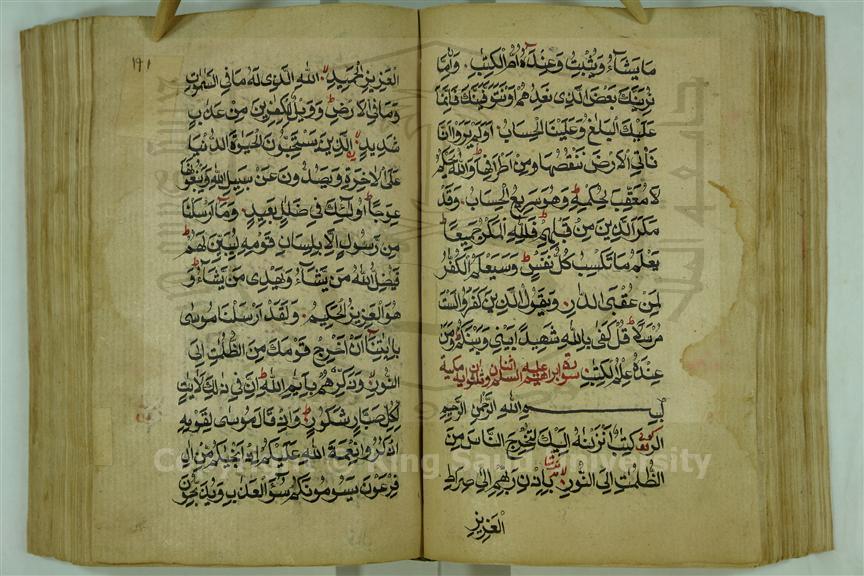 ما يشاء ويثبت وعنده ام الكتب وان ما
نرينك بعض الذي نعدهم او نتوفينك فانما
عليك البلغ وعلينا الحساب اولم يروا انا
ناتي الارض ننقصها من اطرافها والله يحكم
لا معقب لحكمه وهو سريع الحساب وقد
مكر الذين من قبلهم فلله المكر جميعا
يعلم ما تكسب كل نفس وسيعلم الكفر
لمن عقبى الدار ويقول الذين كفروا لست
مرسلا قل كفى بالله شهيدا بيني وبينكم ومن
عنده علم الكتب سورة ابرهيم عليه السلام اثنان وخمسون اية مكية
بسم الله الرحمن الرحيم
الر كتب انزلنه اليك لتخرج الناس من
الظلمت الى النور باذن ربهم الى صراط
العزيز
١٩١
العزيز الحميد الله الذي له ما في السموت
وما في الارض وويل للكفرين من عذاب
شديد الذين يستحبون الحيوة الدنيا
على الاخرة ويصدون عن سبيل الله ويبغونها
عوجا اولئك في ضلل بعيد وما ارسلنا
من رسول الا بلسان قومه ليبين لهم
فيضل الله من يشاء ويهدي من يشاء و
هو العزيز الحكيم ولقد ارسلنا موسى
بايتنا ان اخرج قومك من الظلمت الى
النور وذكرهم بايم الله ان في ذلك لايت
لكل صبار شكور واذ قال موسى لقومه
اذكروا نعمة الله عليكم اذ انجيكم من ال
فرعون يسومونكم سوء العذاب ويذبحون
Copyright © King Saud University